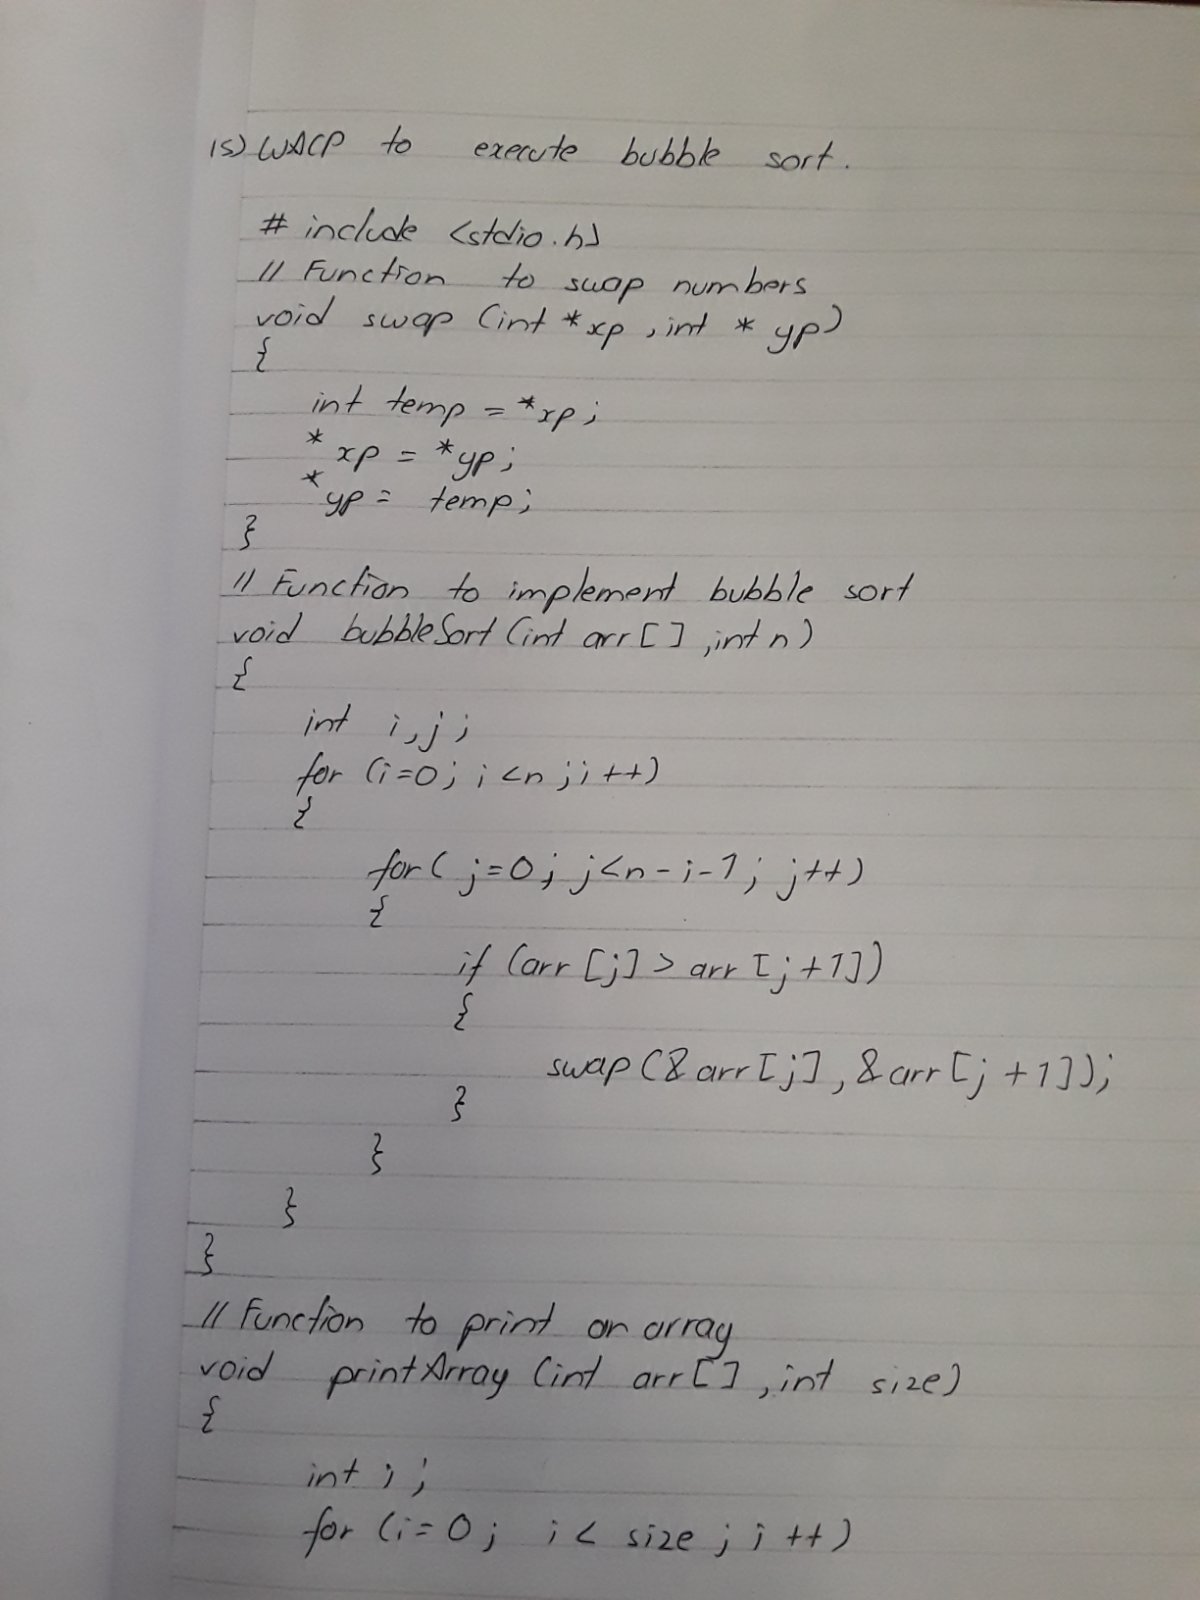 15) WACP to execute bubble sort.
# include <stdio.h>
// Function to swap numbers
void swap (int *xp, int * yp)
{
int temp = *xp;
*xp = *yp;
*yp = temp;
}
// Function to implement bubble sort
void bubbleSort (int arr[], int n)
{
int i, j;
for (i=0; i<n; i++)
{
for( j=0; j<n-i-1; j++)
{
if (arr[j] > arr[j+1])
{
swap (&arr[j], &arr[j+1]);
}
}
}
}
// Function to print an array
void printArray (int arr[], int size)
{
int i;
for (i=0; i< size; i++)